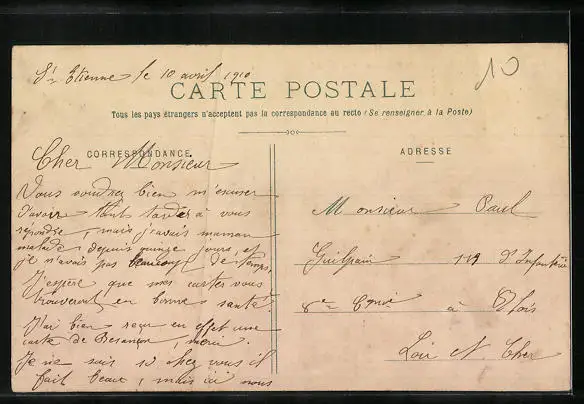 St Etienne le 10 avril 1910
10
CARTE POSTALE
Tous les pays étrangers n'acceptent pas la correspondance au recto (Se renseigner à la Poste)
CORRESPONDANCE
ADRESSE
Cher Monsieur
Vous voudrez bien m'excuser
d'avoir tant tarder à vous
répondre, mais j'avais maman
malade depuis quinze jours, et
je n'avais pas beaucoup de temps.
J'espère que mes cartes vous
trouveront en bonne santé.
J'ai bien reçu en effet une
carte de Besançon, merci.
Je ne sais si chez vous il
fait beau, mais ici nous
Monsieur Paul
Guilpain 113 d'Infanterie
8e Cnie à Blois
Loir et Cher